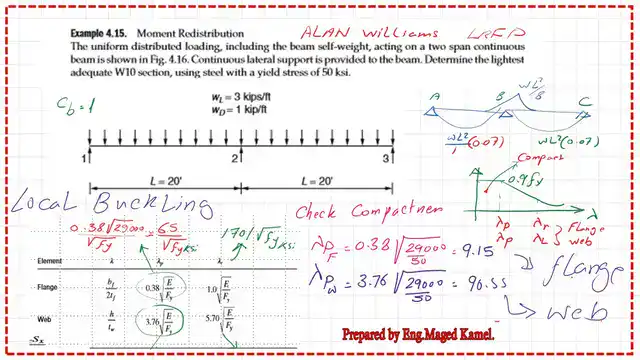 Example 4.15. Moment Redistribution
ALAN Williams LRFD
The uniform distributed loading, including the beam self-weight, acting on a two span continuous
beam is shown in Fig. 4.16. Continuous lateral support is provided to the beam. Determine the lightest
adequate W10 section, using steel with a yield stress of 50 ksi.
Cb=1
wL = 3 kips/ft
wD = 1 kip/ft
1 2 3
L = 20' L = 20'
A B C
WL²/8
WL²/1 (0.07) WL²(0.07)
Compact
0.9fy
λp λr } Flange
λp λr } web
λ
Local Buckling
0.38√29000/√fy = 65/√fy ksi
170/√fy ksi
Element λ λp λr
Flange bf/2tf 0.38√E/Fy 1.0√E/Fy
Web h/tw 3.76√E/Fy 5.70√E/Fy
Sx
Check Compactnen
λPF = 0.38√29000/50 = 9.15
λPW = 3.76√29000/50 = 90.55
flange
web
Prepared by Eng.Maged Kamel.